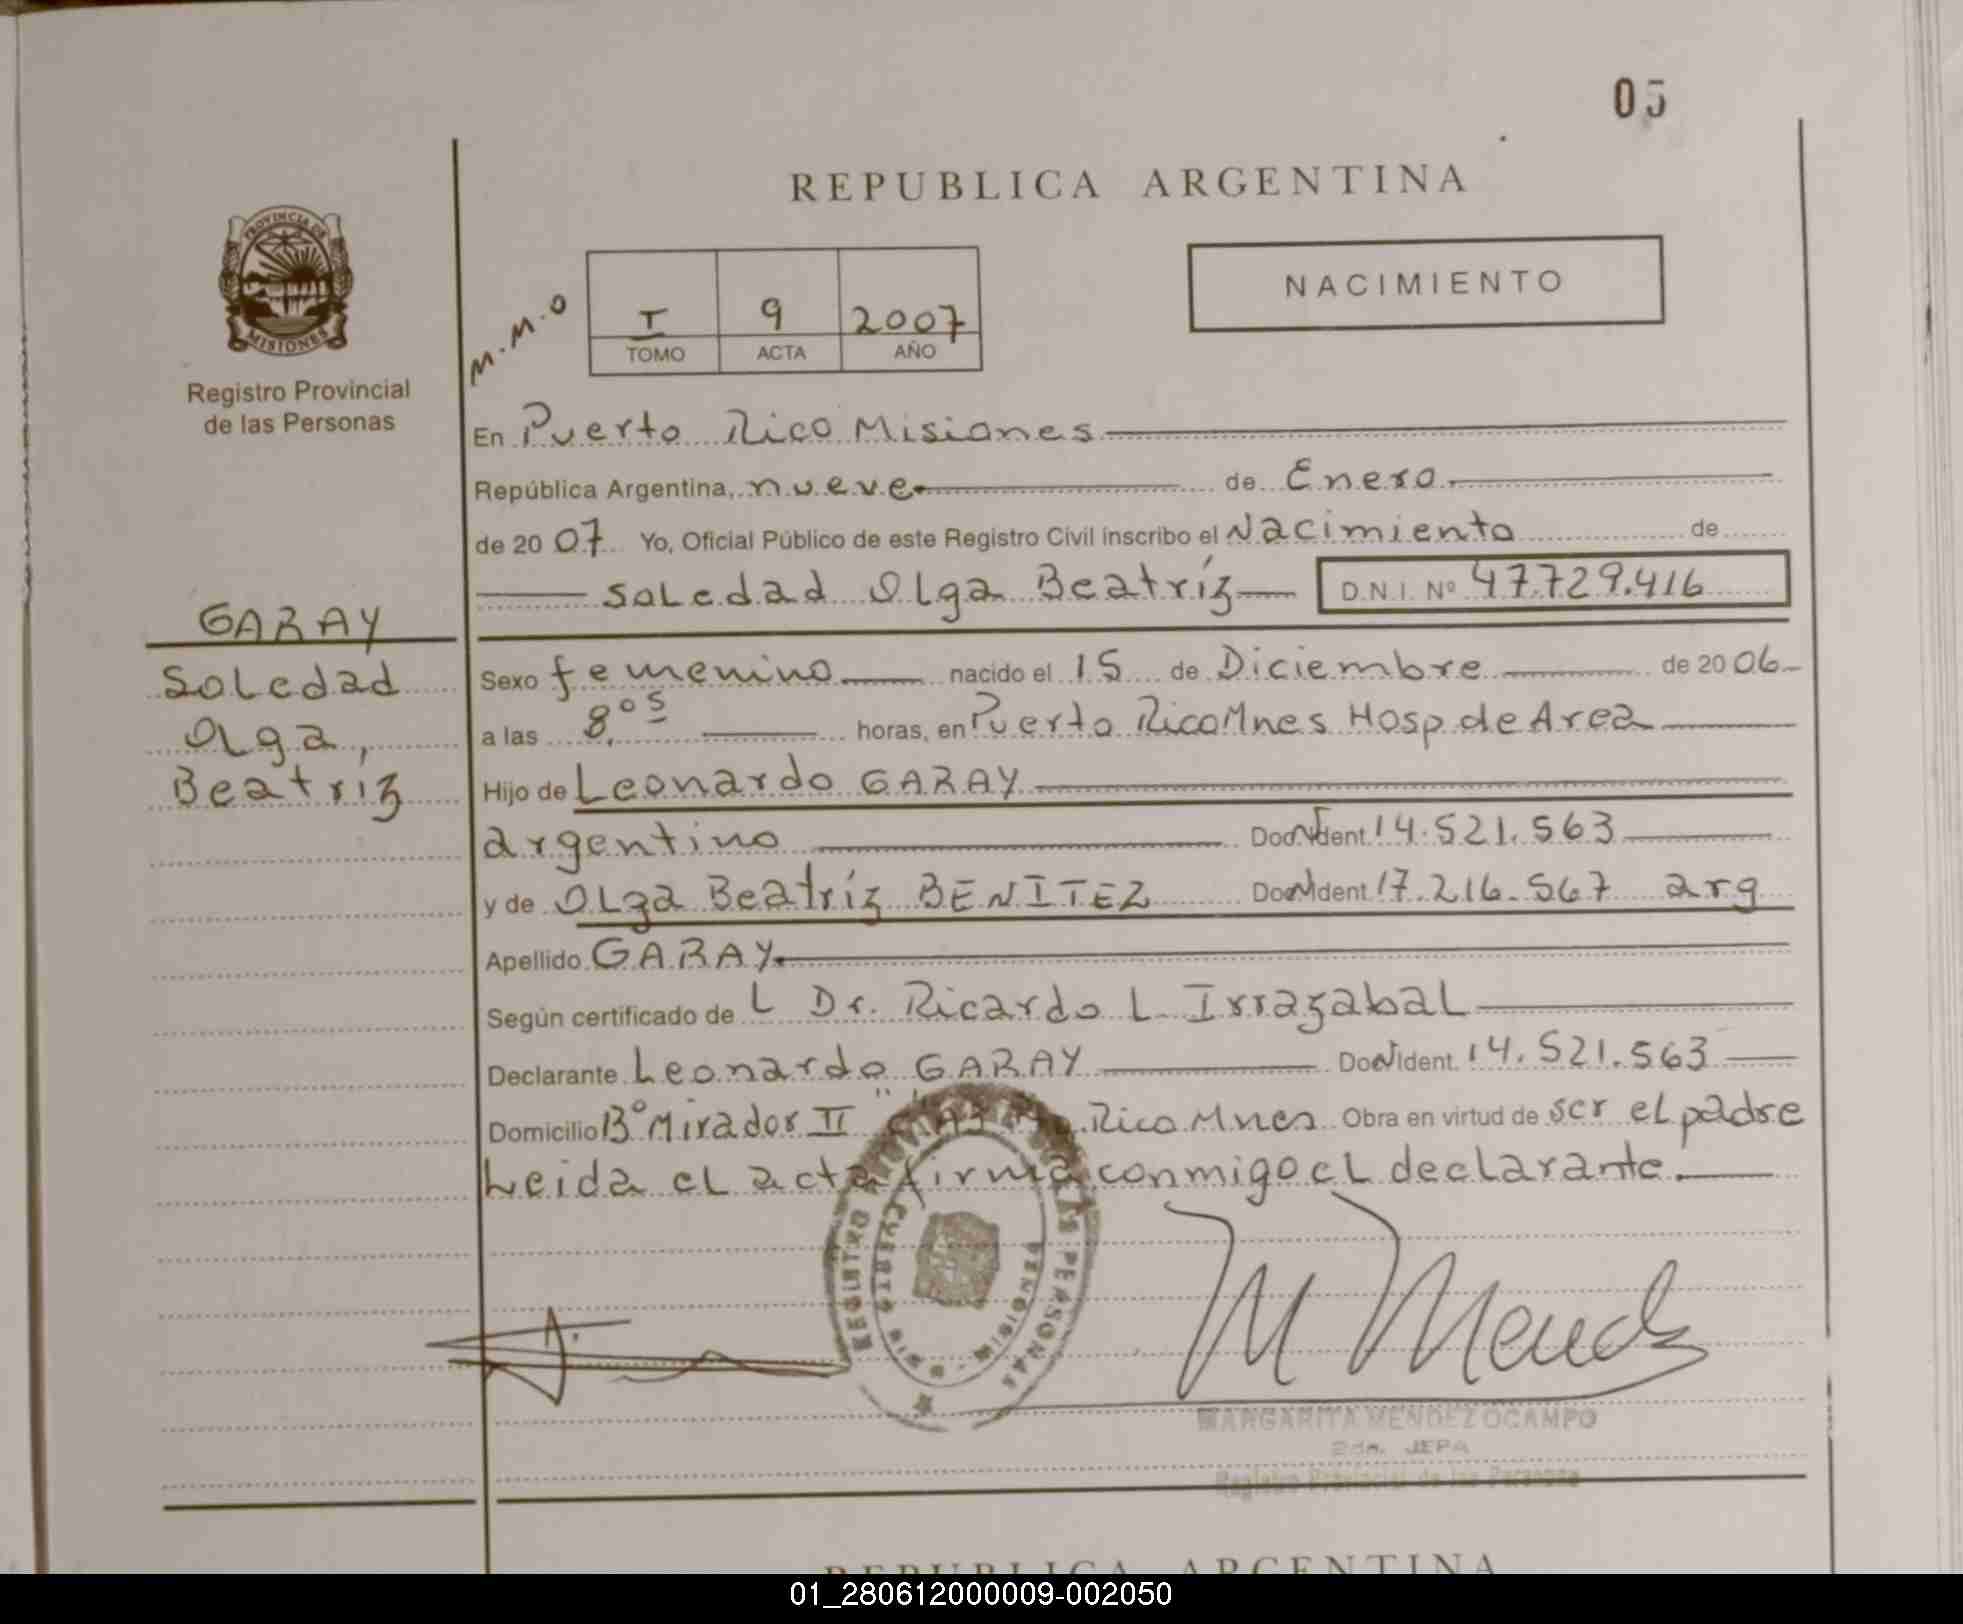 05
REPUBLICA ARGENTINA
PROVINCIA DE
MISIONES
Registro Provincial
de las Personas
M.M.O
I 9 2007
TOMO ACTA AÑO
NACIMIENTO
En Puerto Rico Misiones
República Argentina, nueve de Enero
de 2007 Yo, Oficial Público de este Registro Civil inscribo el Nacimiento de
Soledad Olga Beatríz D.N.I. Nº 47.729.416
GARAY
Soledad
Olga,
Beatriz
Sexo femenino nacido el 15 de Diciembre de 2006
a las 8,05 horas, en Puerto Rico Mnes Hosp. de Area
Hijo de Leonardo GARAY
argentino Doc. Ident. 14.521.563
y de Olga Beatríz BENITEZ Doc. Ident. 17.216.567 arg
Apellido GARAY
Según certificado de L Dr. Ricardo L. Irrazabal
Declarante Leonardo GARAY Doc. Ident. 14.521.563
Domicilio Bº Mirador II Rico Mnes Obra en virtud de ser el padre
Leida el acta firma conmigo el declarante.
REGISTRO PROVINCIAL DE LAS PERSONAS
PUERTO RICO - MISIONES
M Mendz
MARGARITA MENDEZ OCAMPO
2da. JEFA
Registro Provincial de las Personas
REPUBLICA ARGENTINA
01_280612000009-002050